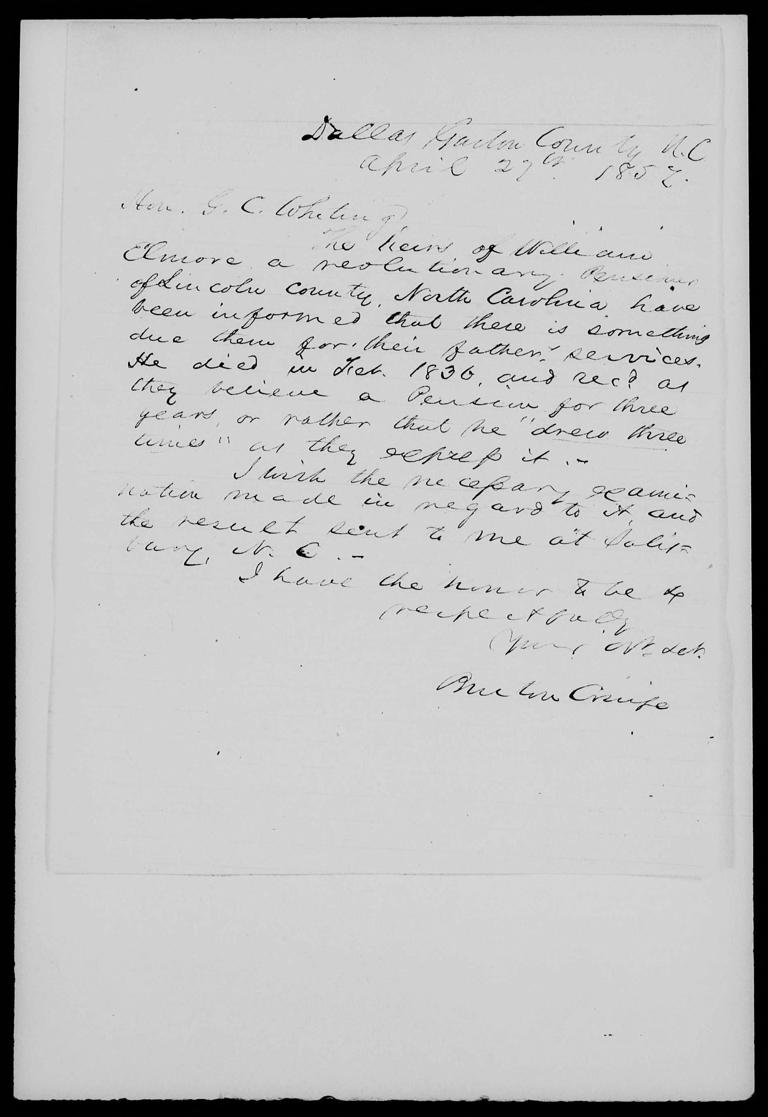 Dallas, Gaston County N.C
April 27th 1857.
Hon. G. C. Whiting
The heirs of William
Elmore a revolutionary Pensioner
of Lincoln County, North Carolina, have
been informed that there is something
due them for their father's services.
He died in Feb. 1836, and recd as
they believe a Pension for three
years, or rather that he "drew three
times" as they express it. -
I wish the necessary exami=
nation made in regard to it, and
the result sent to me at Salis=
bury, N. C. -
I have the honor to be &
respectfully
Your, Obt. Svt.
Burton Craige